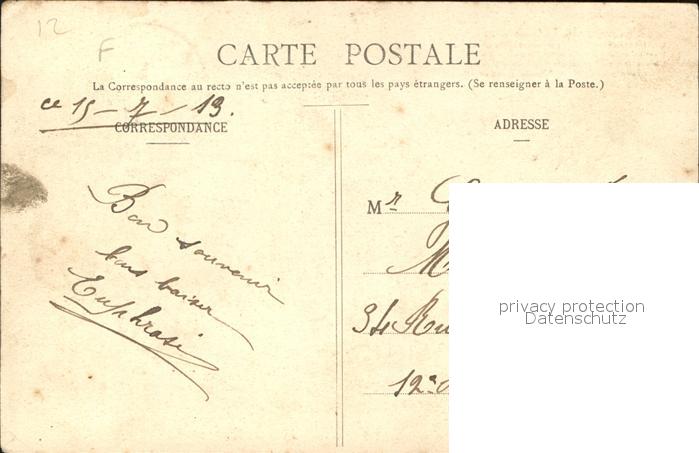 12
F
CARTE POSTALE
La Correspondance au recto n'est pas acceptée par tous les pays étrangers. (Se renseigner à la Poste.)
ce 15 - 7 - 13.
CORRESPONDANCE
ADRESSE
Bon souvenir
bons baiser
Euphrasi
Mr
34 Ru
12e
privacy protection
Datenschutz